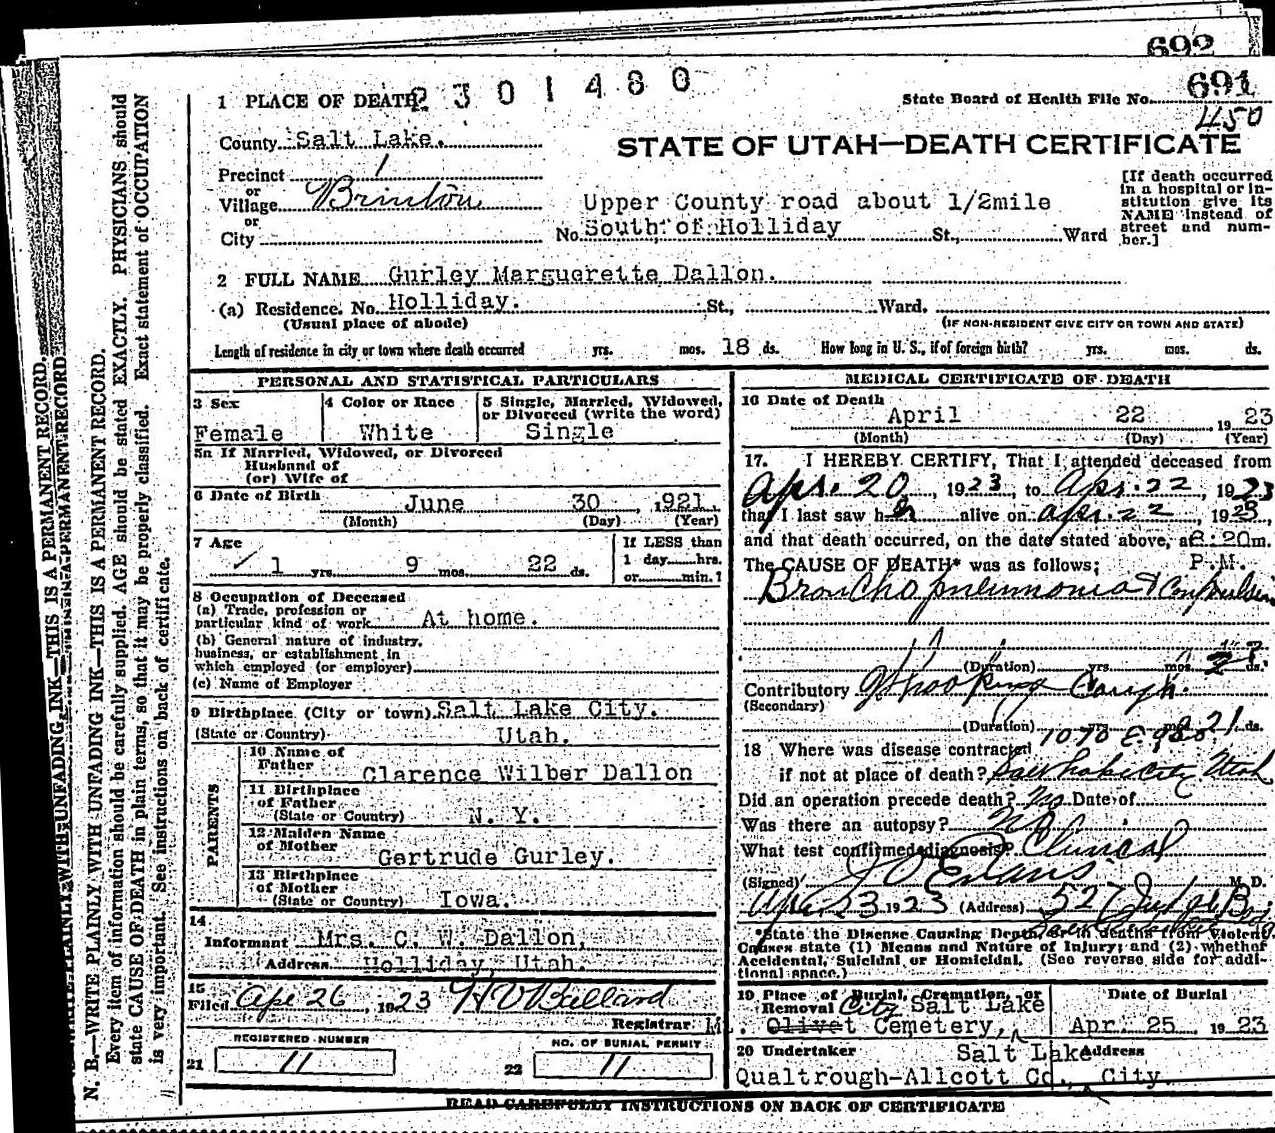 692
691
2 3 0 1 4 8 0
State Board of Health File No.
450
1 PLACE OF DEATH
STATE OF UTAH—DEATH CERTIFICATE
County Salt Lake.
Precinct 1
or
Village Brinton
or
City
Upper County road about 1/2mile
No. South of Holliday St., Ward
[If death occurred
in a hospital or in-
stitution give its
NAME instead of
street and num-
ber.]
2 FULL NAME Gurley Marguerette Dallon.
(a) Residence. No. Holliday. St., Ward.
(Usual place of abode) (IF NON-RESIDENT GIVE CITY OR TOWN AND STATE)
Length of residence in city or town where death occurred yrs. mos. 18 ds. How long in U. S., if of foreign birth? yrs. mos. ds.
PERSONAL AND STATISTICAL PARTICULARS
3 Sex
Female
4 Color or Race
White
5 Single, Married, Widowed,
or Divorced (write the word)
Single
5a If Married, Widowed, or Divorced
Husband of
(or) Wife of
6 Date of Birth June 30, 1921.
(Month) (Day) (Year)
7 Age
1 yrs. 9 mos. 22 ds.
If LESS than
1 day....hrs.
or....min.?
8 Occupation of Deceased
(a) Trade, profession or
particular kind of work At home.
(b) General nature of industry,
business, or establishment in
which employed (or employer)
(c) Name of Employer
9 Birthplace (City or town) Salt Lake City.
(State or Country) Utah.
PARENTS
10 Name of
Father Clarence Wilber Dallon
11 Birthplace
of Father
(State or Country) N. Y.
12 Maiden Name
of Mother Gertrude Gurley.
13 Birthplace
of Mother
(State or Country) Iowa.
14
Informant Mrs. C. W. Dallon,
Address Holliday, Utah.
15
Filed Apr 26, 1923 H V Ballard
Registrar
REGISTERED NUMBER
21 11
NO. OF BURIAL PERMIT
22 11
MEDICAL CERTIFICATE OF DEATH
16 Date of Death
April 22 1923
(Month) (Day) (Year)
17. I HEREBY CERTIFY, That I attended deceased from
Apr. 20, 1923, to Apr. 22, 1923
that I last saw her alive on Apr. 22, 1923
and that death occurred, on the date stated above, at 8:20m.
The CAUSE OF DEATH* was as follows: P.M.
Broncho pneumonia & Convulsions
(Duration) yrs. mos. 2 ds.
Contributory Whooping Cough.
(Secondary)
(Duration) yrs. mos. 21 ds.
18 Where was disease contracted 1070 E. 9th So
if not at place of death? Salt Lake City Utah
Did an operation precede death? No Date of
Was there an autopsy? No
What test confirmed diagnosis? Clinical
(Signed) J O Evans M. D.
Apr. 23 1923 (Address) 527 Judge Bg
*State the Disease Causing Death, or in deaths from Violent
Causes state (1) Means and Nature of Injury; and (2) whether
Accidental, Suicidal or Homicidal. (See reverse side for addi-
tional space.)
19 Place of Burial, Cremation, or
Removal City Salt Lake
Mt. Olivet Cemetery,
Date of Burial
Apr. 25 1923
20 Undertaker
Qualtrough-Allcott Co.,
Address
Salt Lake
City.
READ CAREFULLY INSTRUCTIONS ON BACK OF CERTIFICATE
N. B.—WRITE PLAINLY WITH UNFADING INK—THIS IS A PERMANENT RECORD.
Every item of information should be carefully supplied. AGE should be stated EXACTLY. PHYSICIANS should
state CAUSE OF DEATH in plain terms, so that it may be properly classified. Exact statement of OCCUPATION
is very important. See instructions on back of certificate.